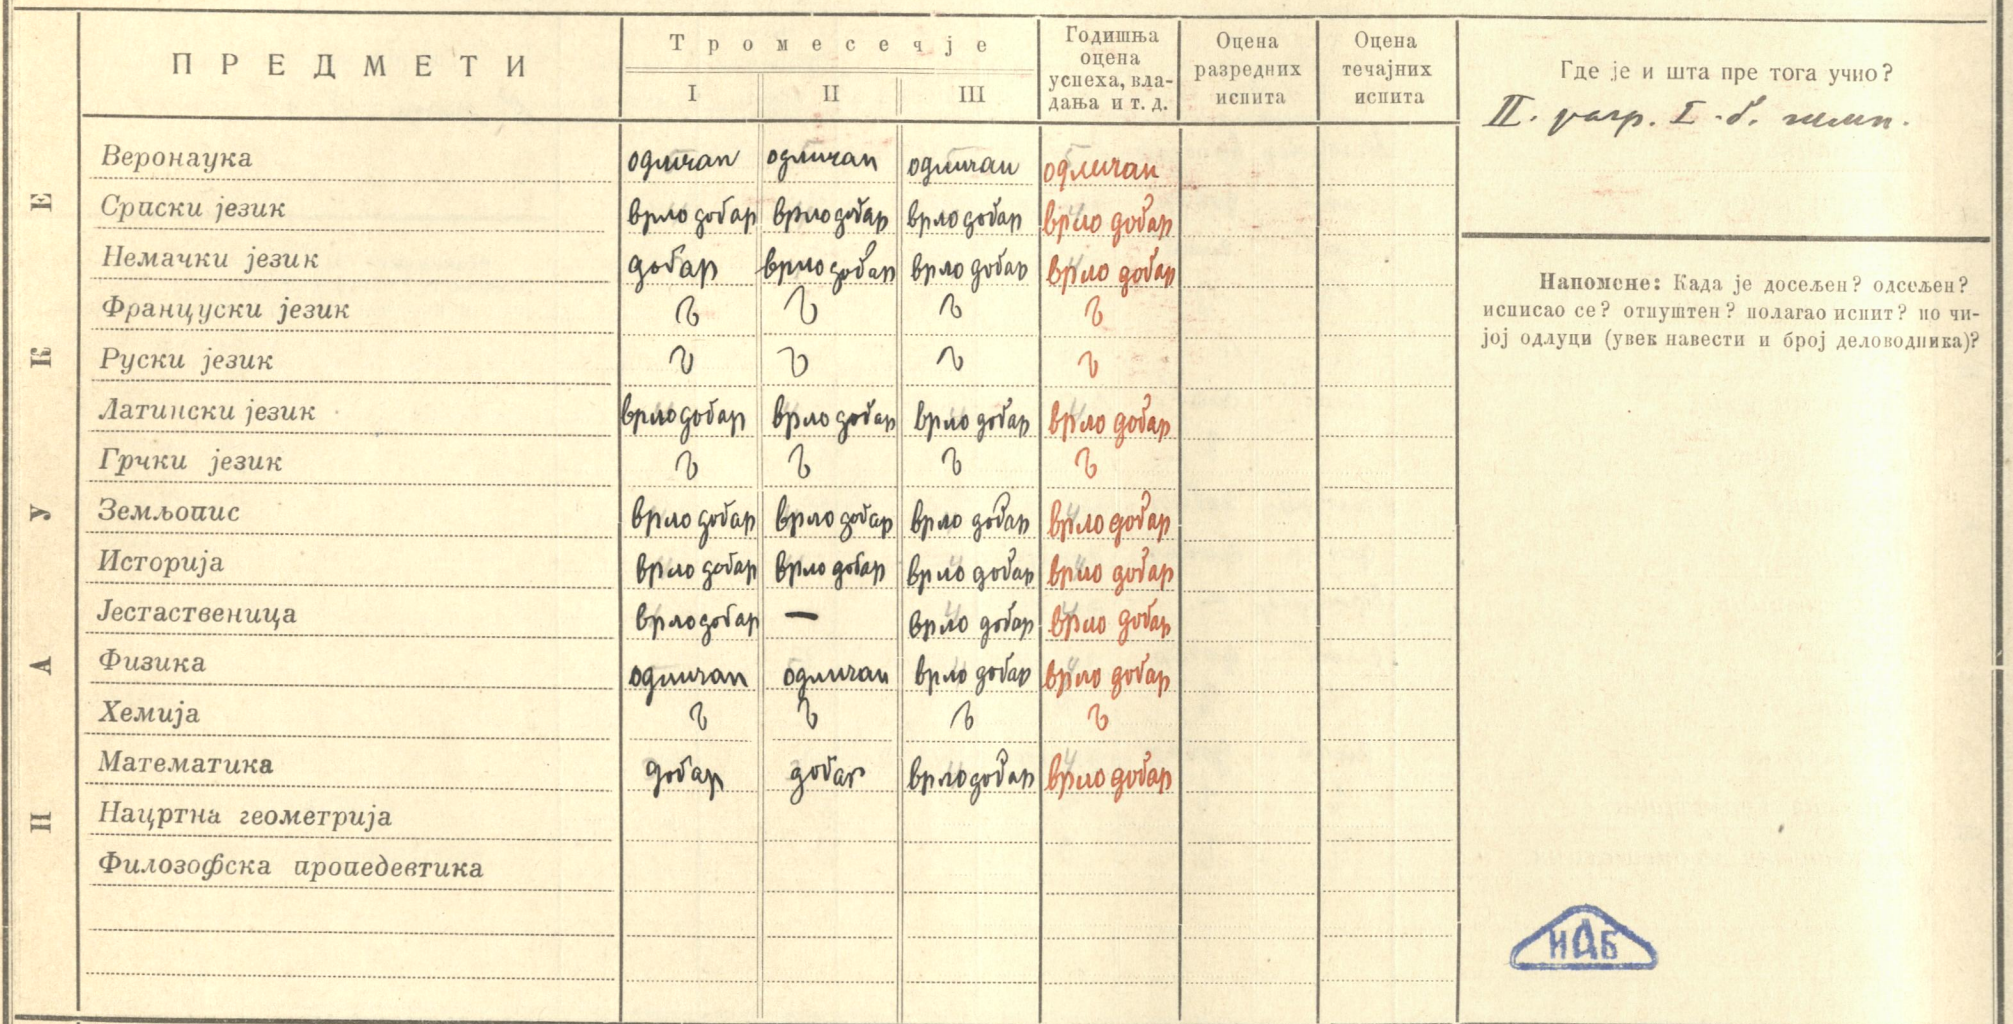 ПРЕДМЕТИ
Тромесечје
I II III
Годишња
оцена
успеха, вла-
дања и т. д.
Оцена
разредних
испита
Оцена
течајних
испита
Где је и шта пре тога учио?
II. разр. I. б. гимн.
НАУКЕ
Веронаука одличан одличан одличан одличан
Српски језик врло добар врло добар врло добар врло добар
Немачки језик добар врло добар врло добар врло добар
Француски језик
Руски језик
Латински језик врло добар врло добар врло добар врло добар
Грчки језик
Земљопис врло добар врло добар врло добар врло добар
Историја врло добар врло добар врло добар врло добар
Јестаственица врло добар — врло добар врло добар
Физика одличан одличан врло добар врло добар
Хемија
Математика добар добар врло добар врло добар
Нацртна геометрија
Филозофска пропедевтика
Напомене: Када је досељен? одсељен?
исписао се? отпуштен? полагао испит? по чи-
јој одлуци (увек навести и број деловодника)?
ИАБ